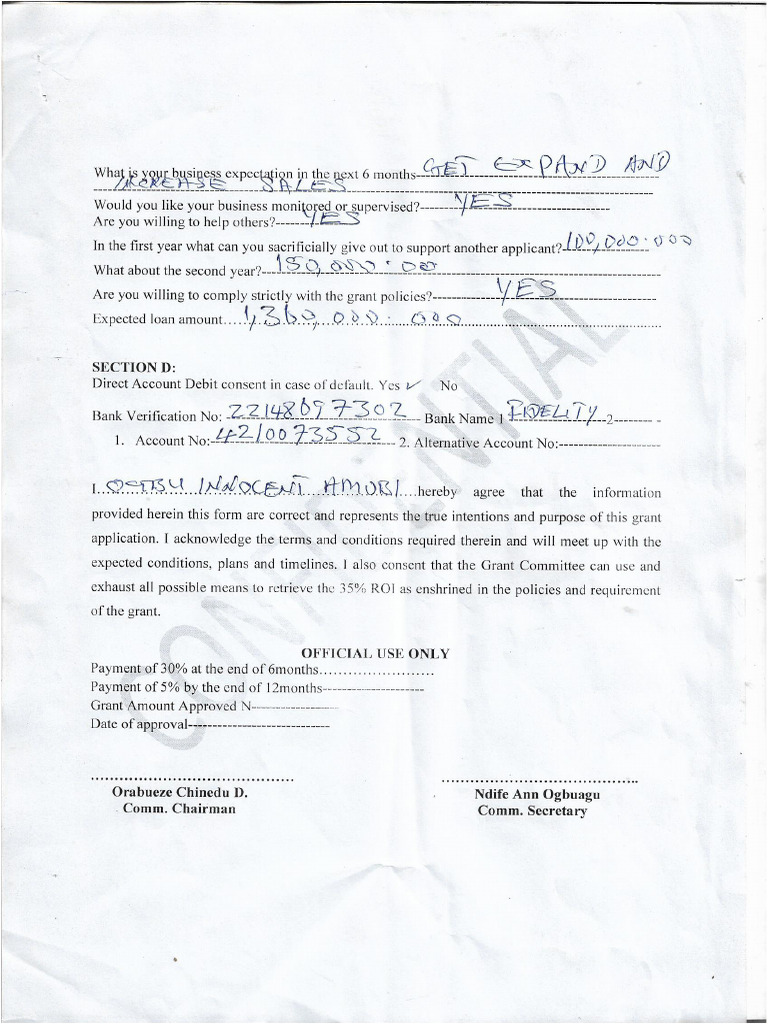 What is your business expectation in the next 6 months GET EXPAND AND
INCREASE SALES
Would you like your business monitored or supervised?-------YES--------------------
Are you willing to help others?-------YES
In the first year what can you sacrificially give out to support another applicant? 100,000.000
What about the second year?---150,000.00--------------------
Are you willing to comply strictly with the grant policies?-------------YES--------------------
Expected loan amount.....1,360,000.000..............................
SECTION D:
Direct Account Debit consent in case of default. Yes ✓ No
Bank Verification No: 22148697302 Bank Name 1 FIDELITY 2-------- -
1. Account No: 4210073552 -- 2. Alternative Account No:---------------------
I INNOCENT AMOBI ....hereby agree that the information
provided herein this form are correct and represents the true intentions and purpose of this grant
application. I acknowledge the terms and conditions required therein and will meet up with the
expected conditions, plans and timelines. I also consent that the Grant Committee can use and
exhaust all possible means to retrieve the 35% ROI as enshrined in the policies and requirement
of the grant.
CONFIDENTIAL
OFFICIAL USE ONLY
Payment of 30% at the end of 6months.........................
Payment of 5% by the end of 12months---------------------
Grant Amount Approved N------------------
Date of approval-----------------------------
Orabueze Chinedu D. Ndife Ann Ogbuagu
Comm. Chairman Comm. Secretary